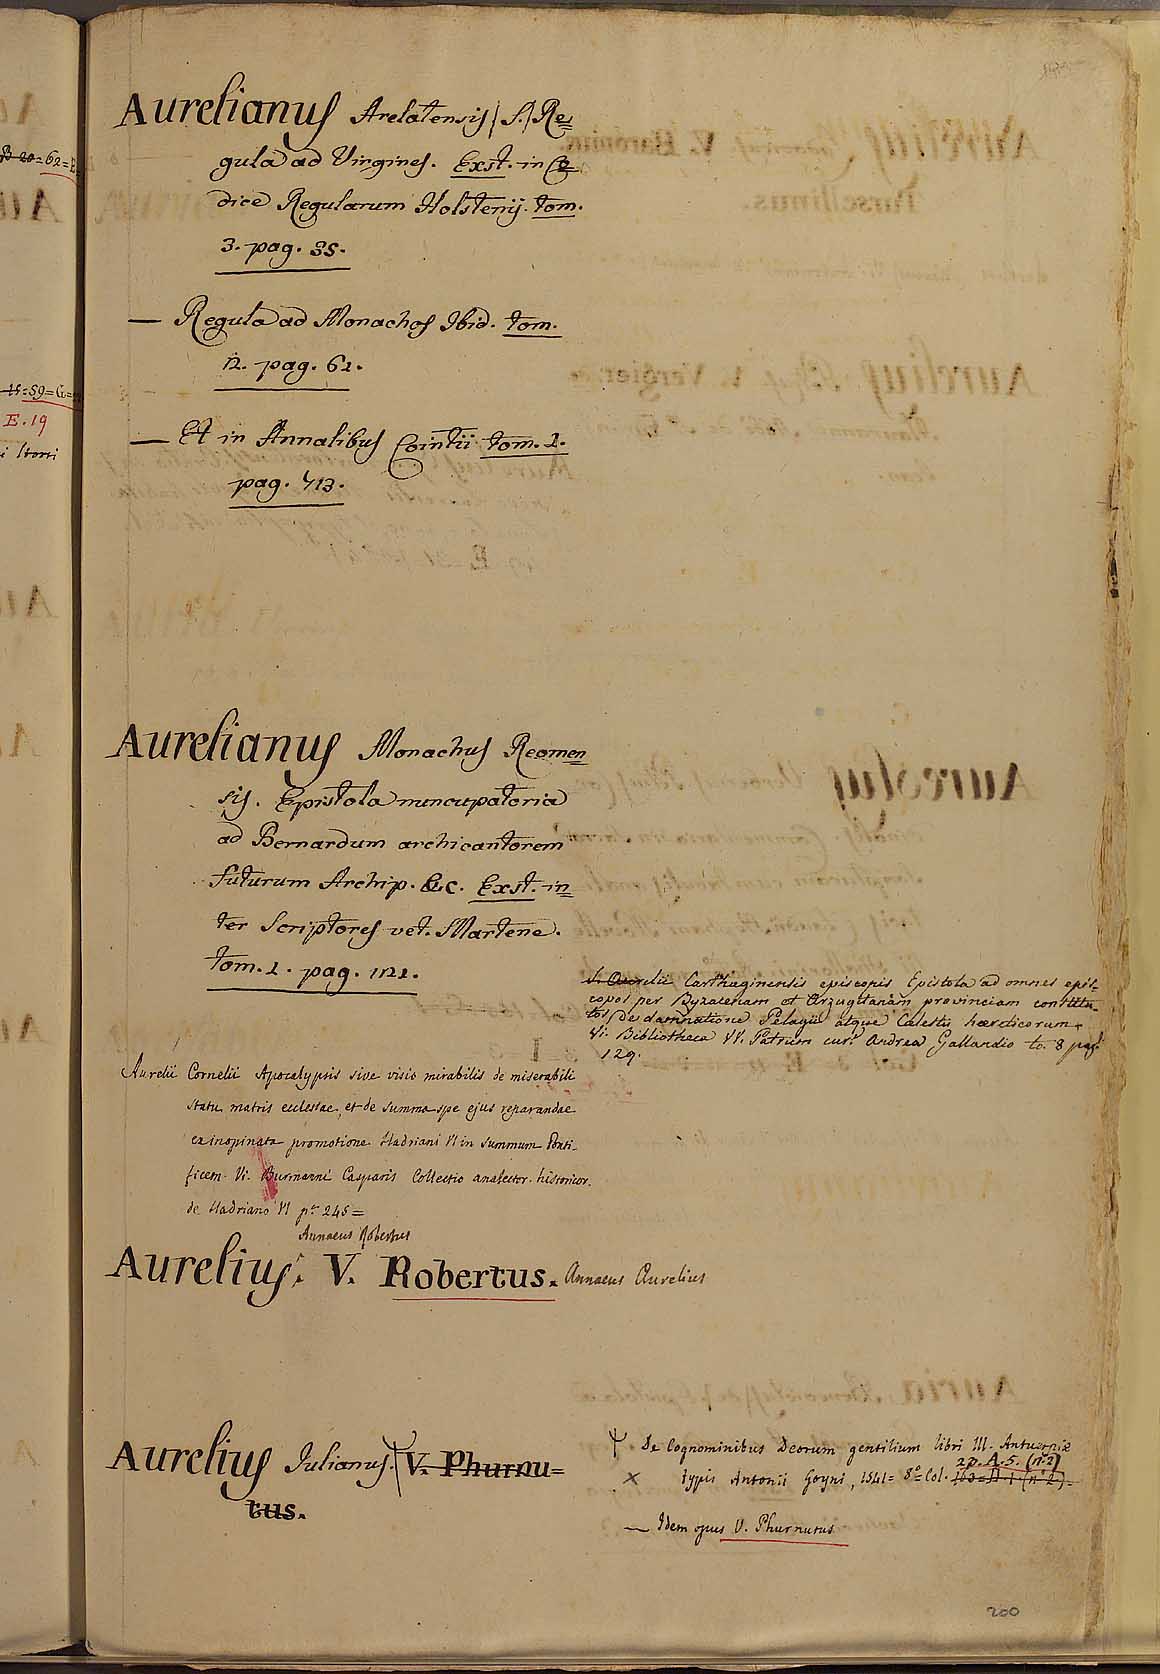 Aurelianus Arelatensis (S.) Re=
gula ad Virgines. Exst. in Co=
dice Regularum Holstenij. tom.
3. pag. 35.
— Regula ad Monachos Ibid. tom.
2. pag. 62.
— Et in Annalibus Cointii tom. 1.
pag. 713.
Aurelianus Monachus Reomen=
sis. Epistola nuncupatoria
ad Bernardum archicantorem
futurum Archip. &c. Exst. in=
ter Scriptores vet. Martene.
tom. 1. pag. 121.
S. Aurelii Carthaginensis episcopis Epistola ad omnes epis-
copos per Byzatenam et Arzugitanam provinciam constitu-
tos De damnatione Pelagii atque Calestii haereticorum.
Vi. Bibliotheca VV. Patrum curâ Andrea Gallandio to. 8 pag.
129.
Aurelii Cornelii Apocalypsis sive visio mirabilis de miserabili
statu matris ecclesiae, et de summa spe ejus reparandae
ex inopinata promotione Hadriani VI in summum Ponti-
ficem. Vi. Burmanni Casparis Collectio analector. historicor.
de Hadriano VI pag. 245=
Annaeus Robertus
Aurelius. V. Robertus. Annaeus Aurelius
Aurelius Julianus. V. Phurnu=
tus.
De Cognominibus Deorum gentilium libri III. Antuerpiæ
29. A. 5. (n. 2)
× typis Antonii Goyni, 1541= 8.º= Col.
— Idem opus V. Phurnutus
200
E. 19